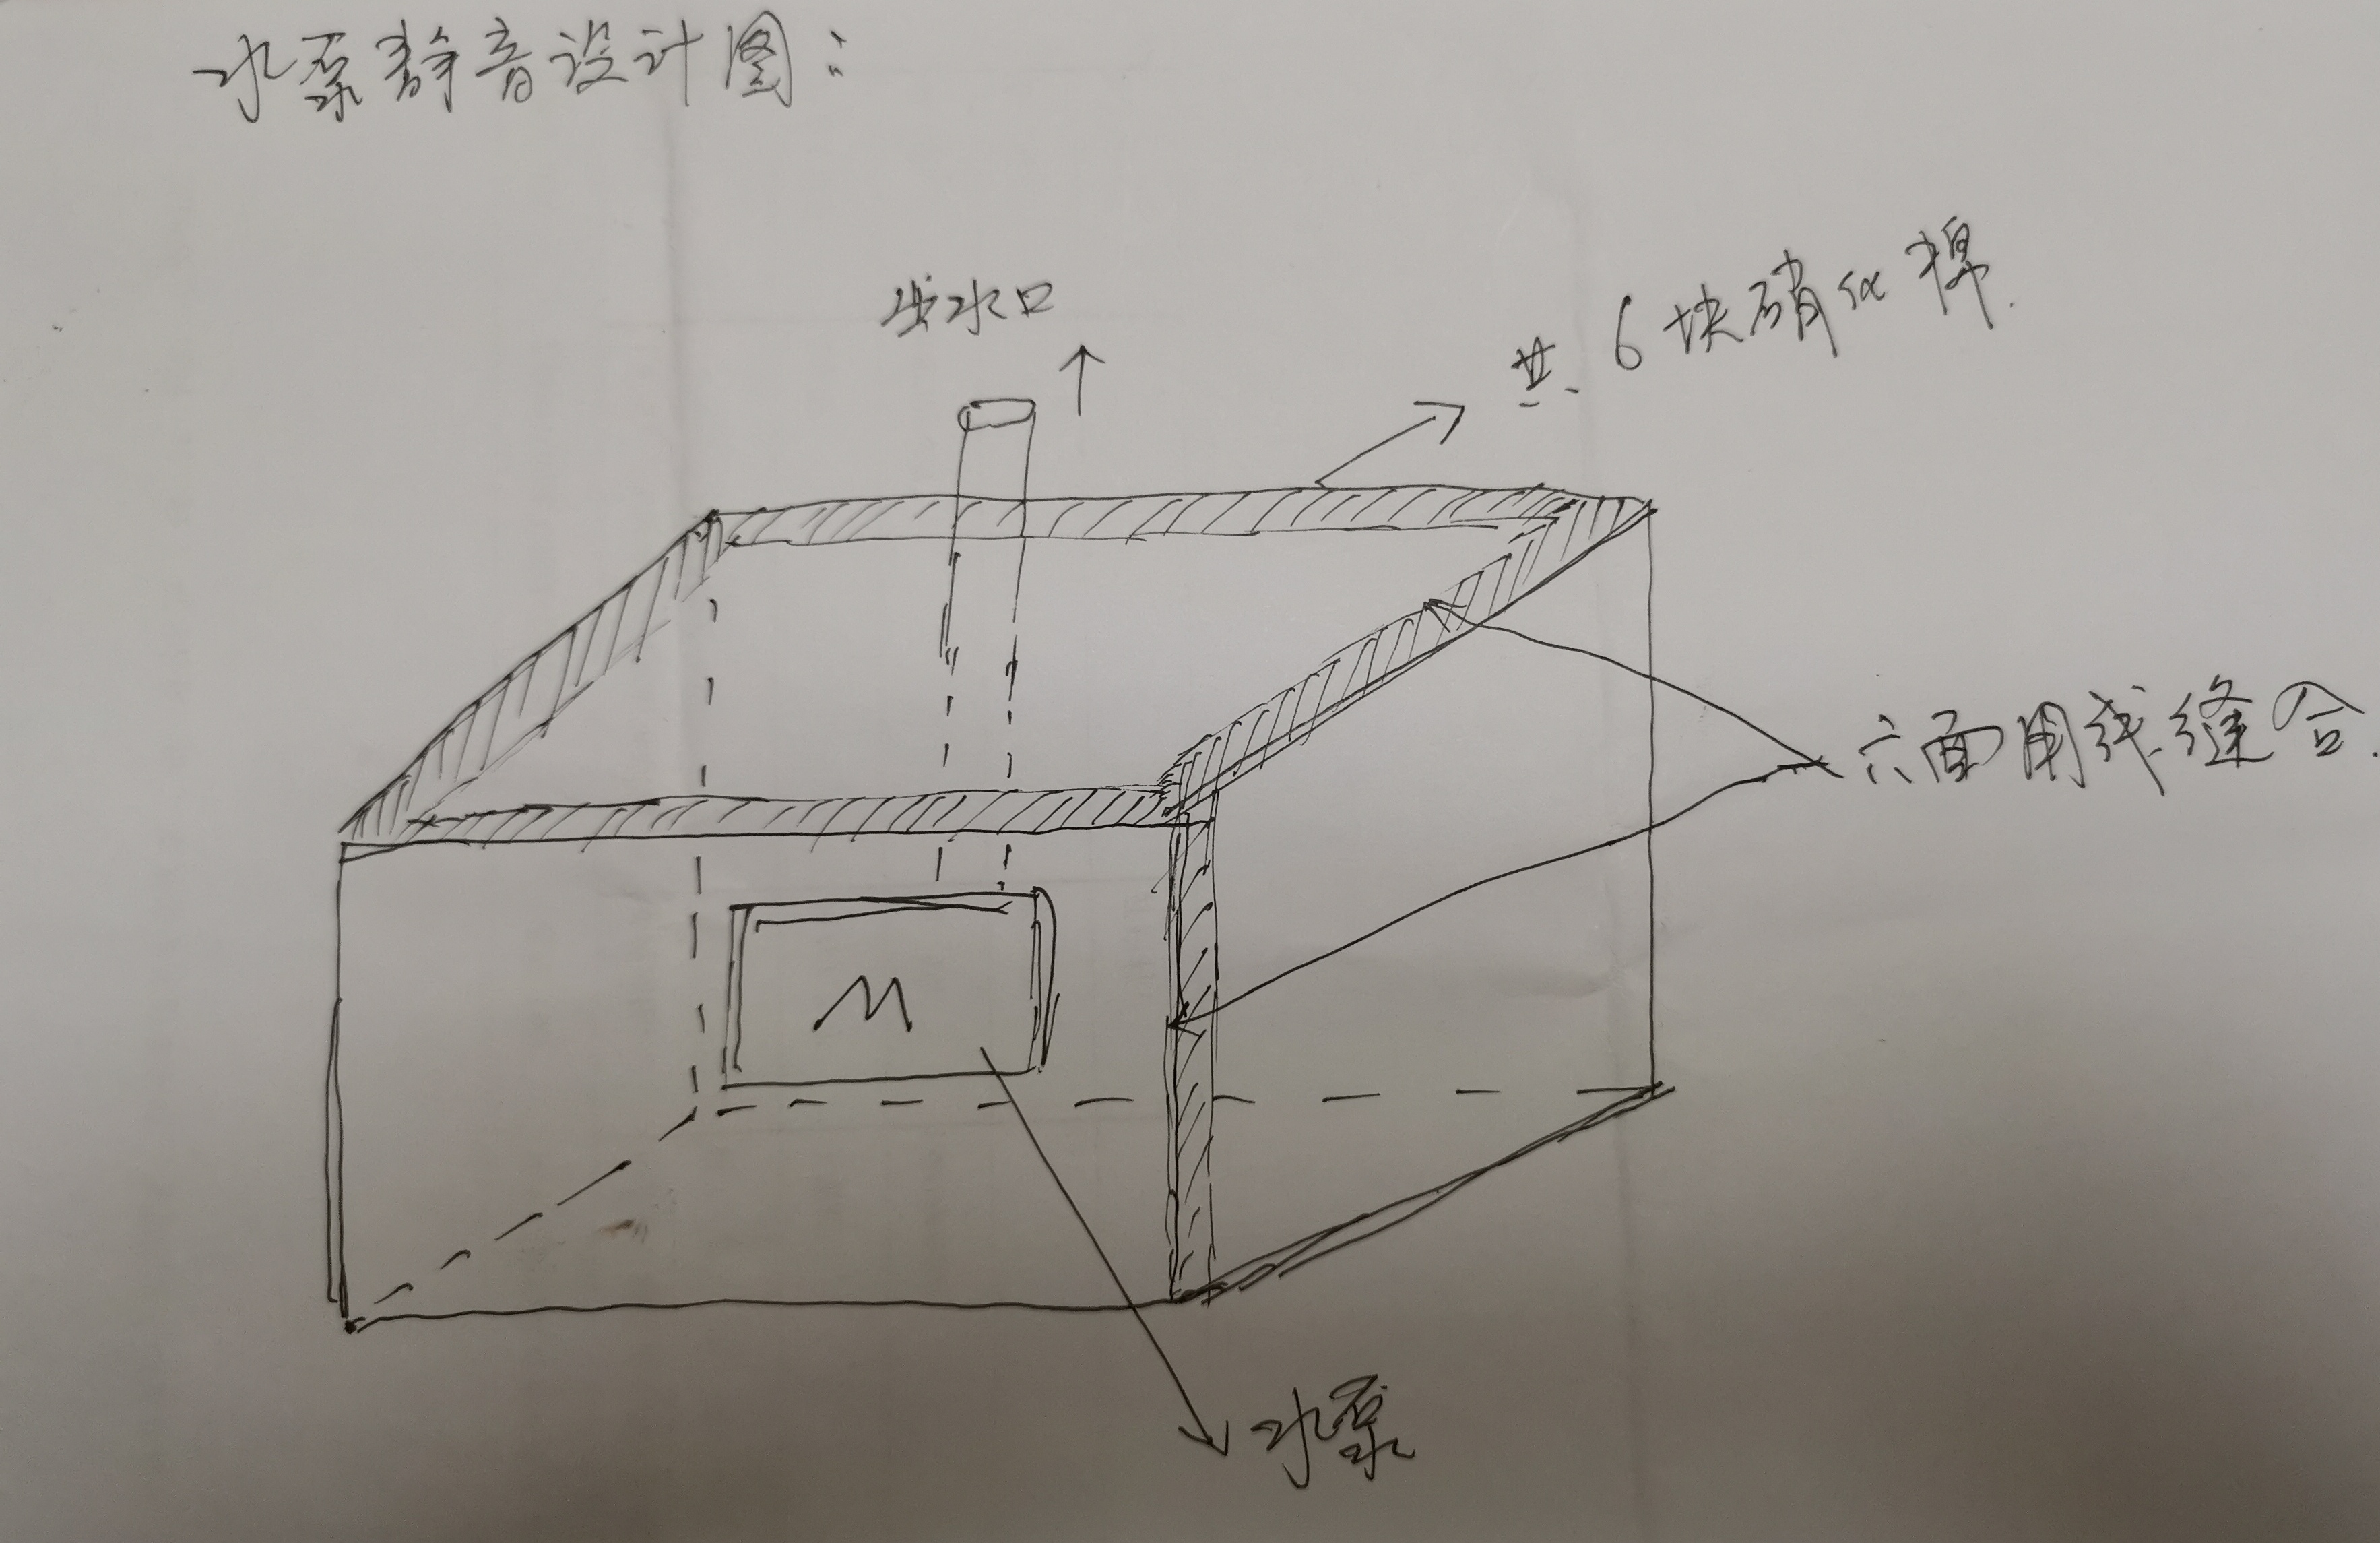 水泵静音设计图：
出水口
共6块硝化棉.
六面用线缝合.
M
水泵